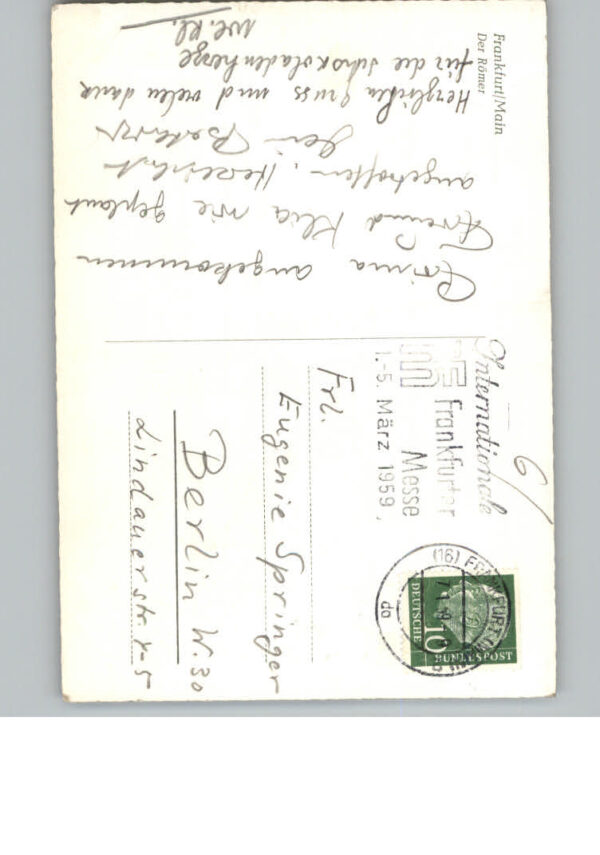 Frankfurt/Main
Der Römer
Prima angekommen
Freund Klia wie geplant
angetroffen. Herzlichst
Dein
Herzlichen Gruss und vielen dank
für die Schokoladenherze
We. Kl.
Internationale
Frankfurter
Messe
1.-5. März 1959
(16) FRANKFURT
do
DEUTSCHE
BUNDESPOST
10
Frl.
Eugenie Springer
Berlin W. 30
Lindauerstr. 4-5